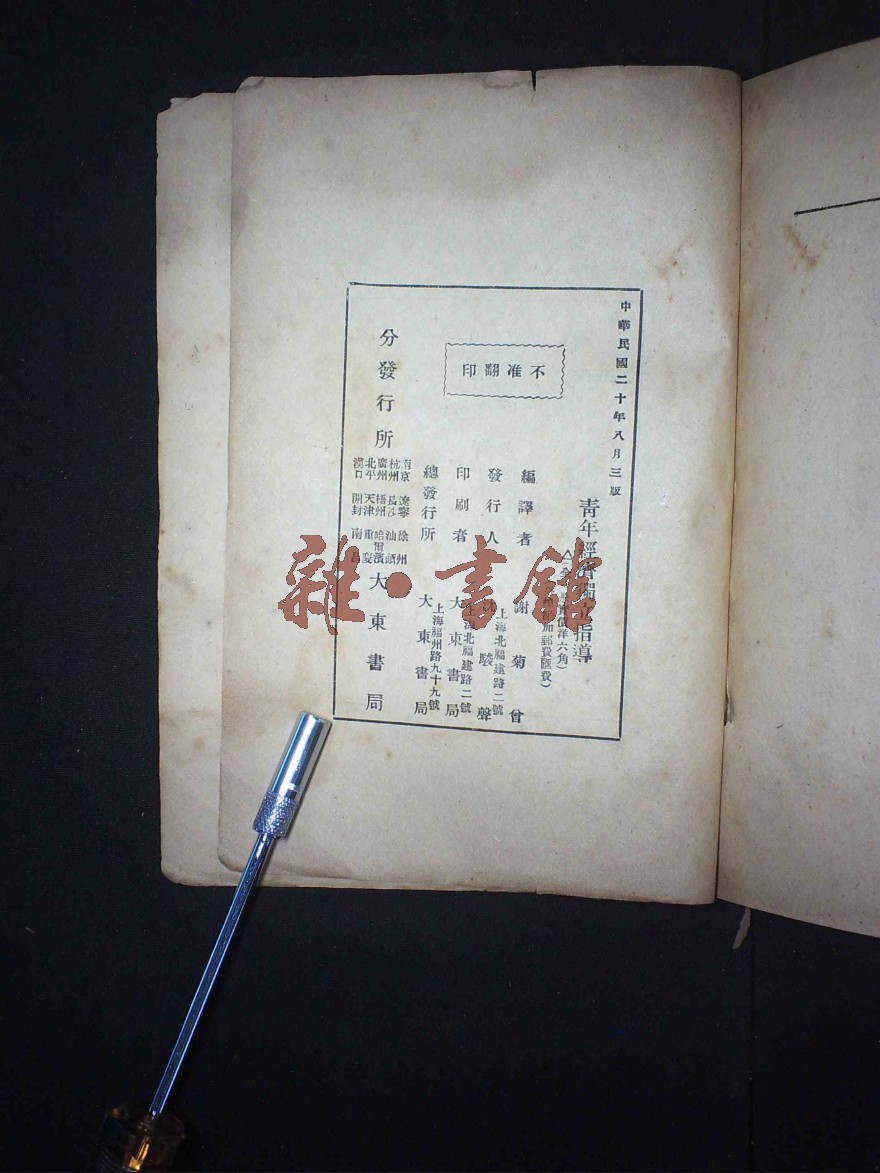 中華民國二十年八月三版
青年經濟獨立指導
實價洋六角)
加郵費匯費)
不准翻印
編譯者 謝菊曾
發行人 沈駿聲
上海北福建路二號
印刷者 大東書局
上海北福建路二號
總發行所 大東書局
上海福州路九十九號
分發行所 大東書局
南京 遼寧 徐州
杭州 長沙 汕頭
廣州 梧州 哈爾濱
北平 天津 重慶
漢口 開封 南昌
雜·書館